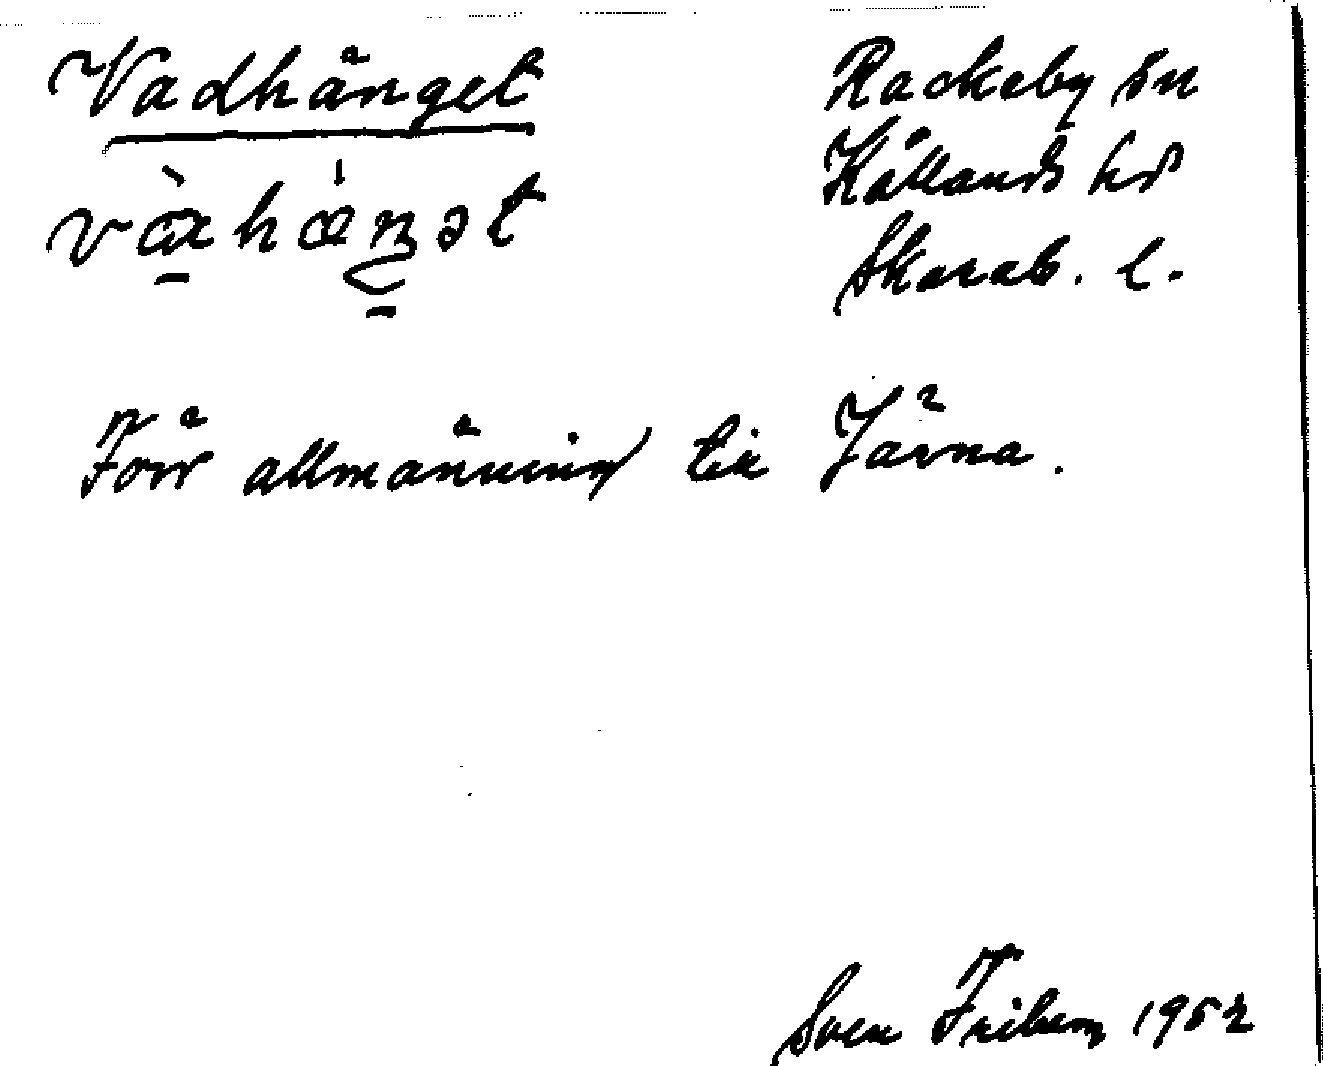 Vadhänget
Rackeby sn
Kållands hd
Skarab. l.
Förr allmänning till Järna.
Sven Friberg 1952